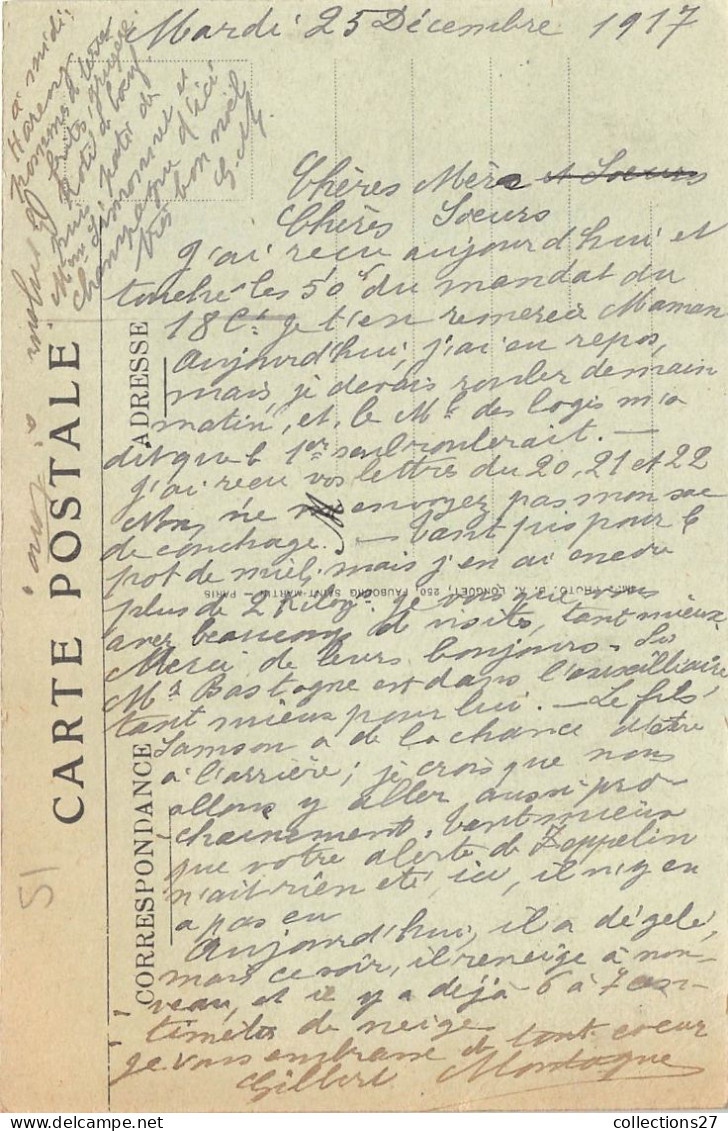 Mardi 25 Décembre 1917
Chères Mère et Soeurs
Chères Soeurs
J'ai reçu aujourd'hui et
touché les 50f du mandat du
18 Ct je t'en remercie Maman
Aujourd'hui, j'ai eu repos,
mais je devais rouler demain
matin, et le Ml des logis m'a
dit que le 1er seul roulerait. —
J'ai reçu vos lettres du 20, 21 et 22
Non, ne m'envoyez pas mon sac
de couchage. — Tant pis pour le
pot de miel, mais j'en ai encore
plus de 2 Kilogs. Je vois que vous
avez beaucoup de visites, tant mieux
Merci de leurs bonjours. Si
Mr Bastogne est dans l'auxilliaire,
tant mieux pour lui. — Le fils
Samson a de la chance d'être
à l'arrière; je crois que nous
allons y aller aussi pro-
chainement. Tant mieux
que votre alerte de Zeppelin
n'ait rien été, ici, il n'y en
a pas eu
Aujourd'hui, il a dégelé,
mais ce soir, il reneige à nou-
veau, et il y a déjà 6 à 7 cen-
timètres de neige
Je vous embrasse de tout coeur
Gilbert Montagne
à midi:
Harengs
pommes de terre
frites, gruyère
Rôti de boeuf
puis pâté de
Mme Simonnet et
champagne d'ici
très bon noël
G.M.
CARTE POSTALE
ADRESSE
CORRESPONDANCE
PHOTO. E. A. LONGUET, 250, FAUBOURG SAINT-MARTIN — PARIS
51
collections27